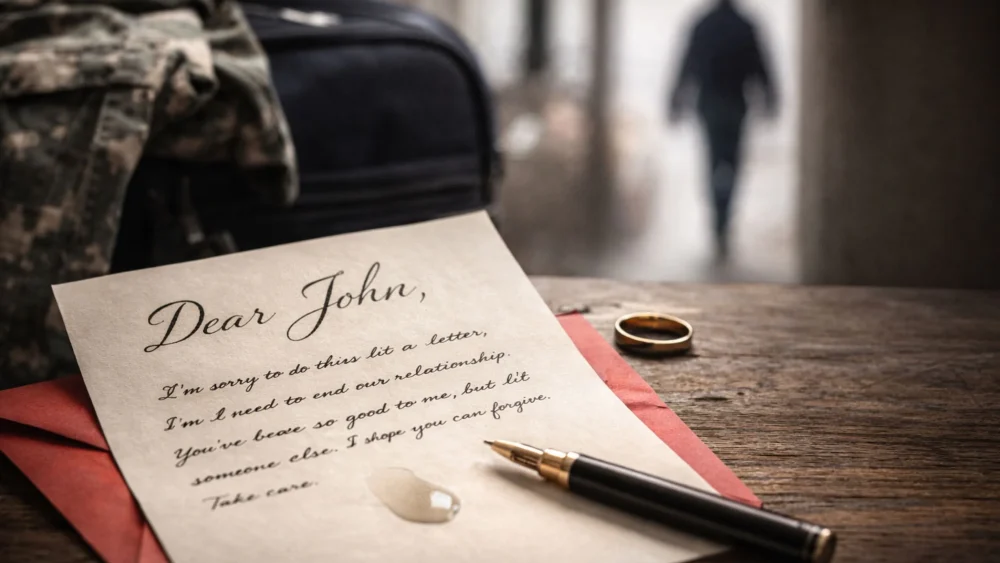 Dear John,
I'm sorry to do this lit a letter,
I'm I need to end our relationship.
You've beae so good to me, but lit
someone else. I shope you can forgive.
Take care.